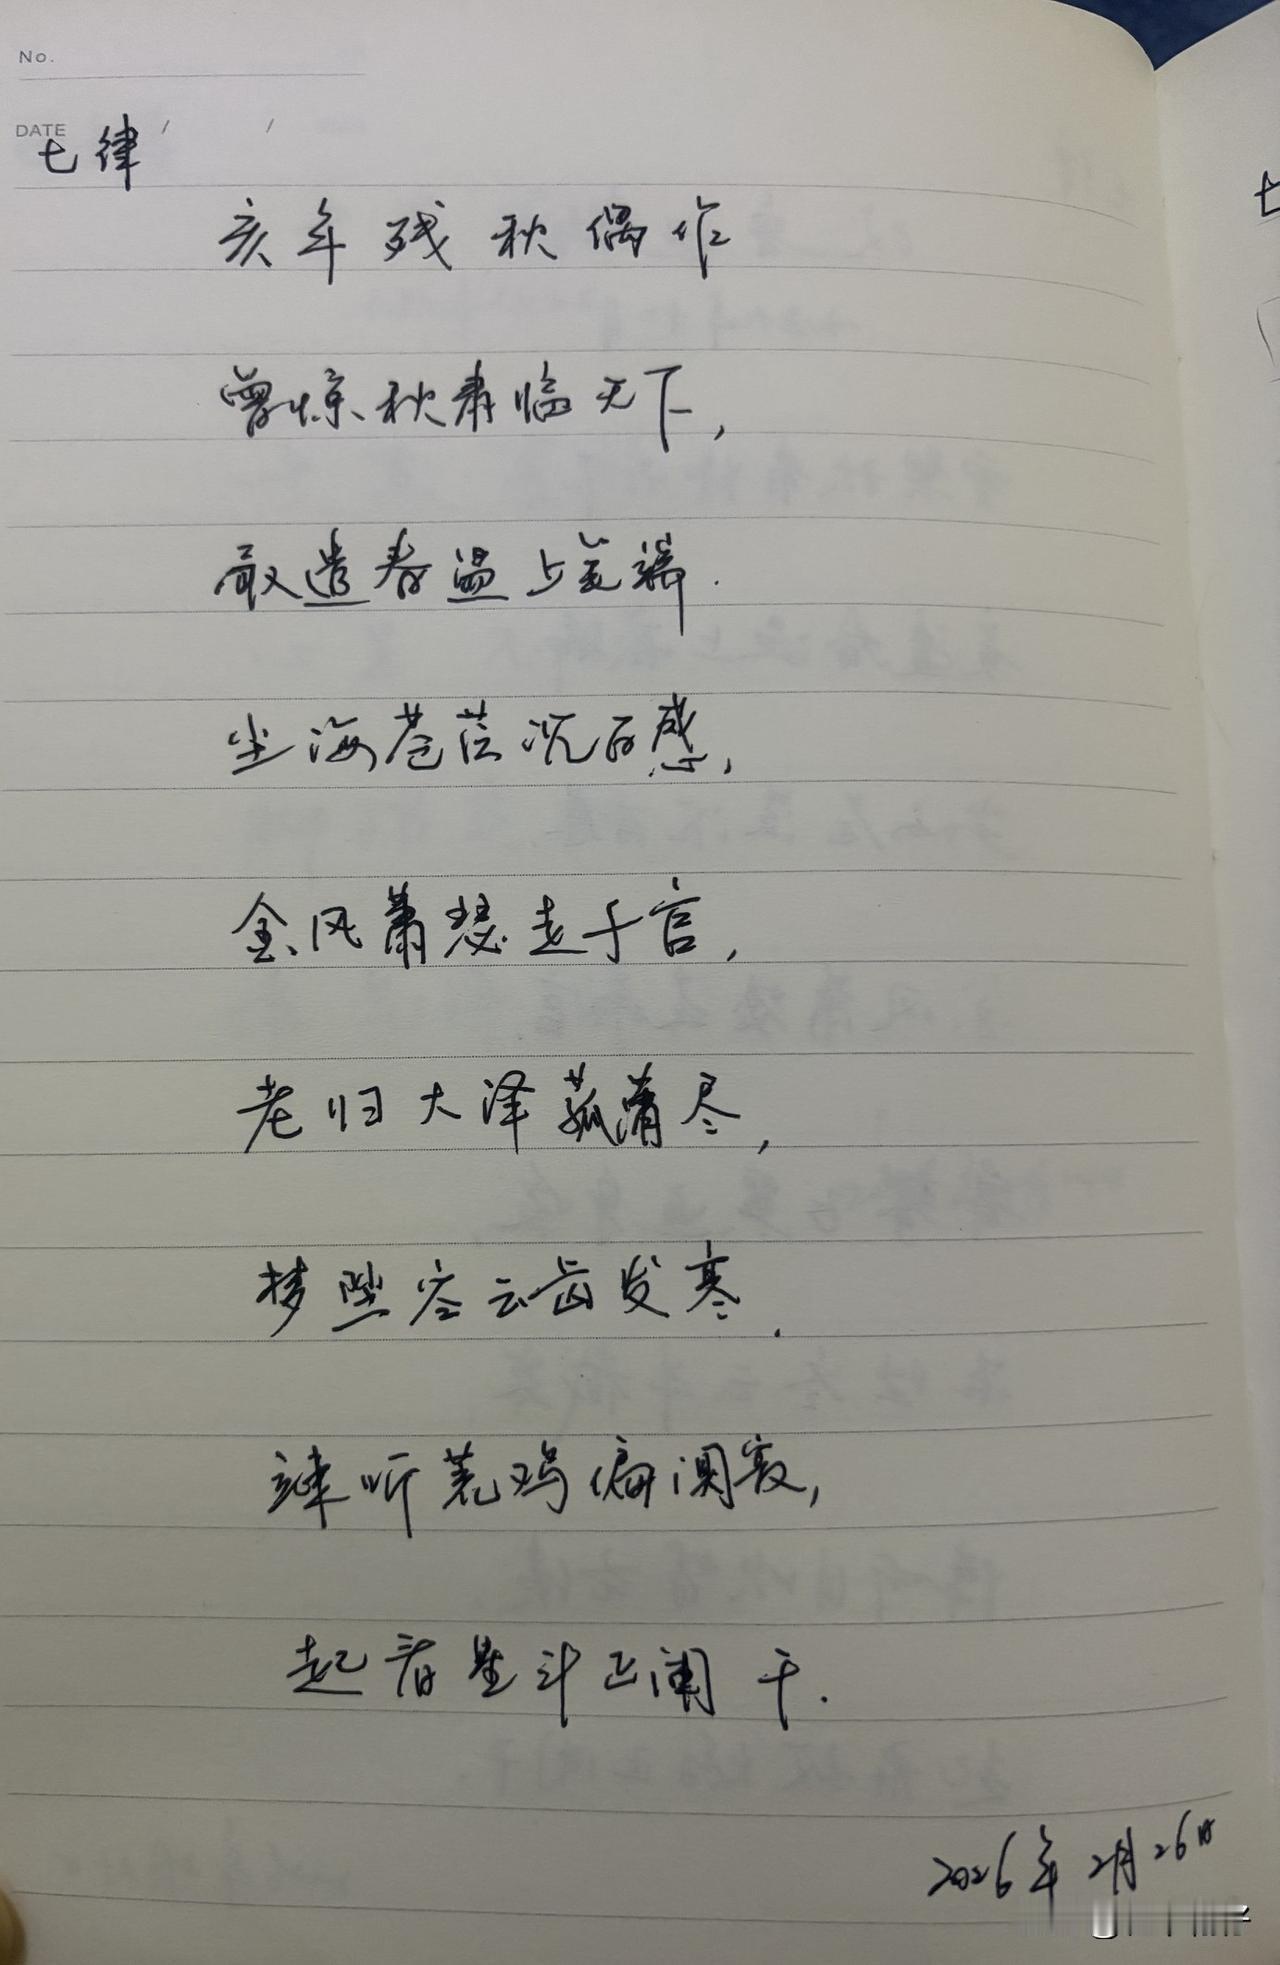 No.
DATE / /
七律
亥年残秋偶作
曾惊秋肃临天下,
敢遣春温上笔端.
尘海苍茫沉百感,
金风萧瑟走千官,
老归大泽菰蒲尽,
梦坠空云齿发寒.
竦听荒鸡偏阒寂,
起看星斗正阑干.
2026年2月26日
七